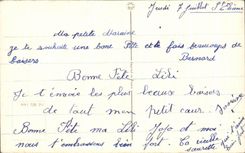 Jeudi 7 Juillet St Etienne
Ma petite Marraine
je te souhaite une bonne Fête et te fais beaucoups de
baisers
Bernard
Bonne Fête Lili
Je t'envoie les plus beaux baisers
de tout mon petit cœur.
Bonne Fête ma Lili Jojo et moi
nous t'embrassons bien fort. Ta vieille